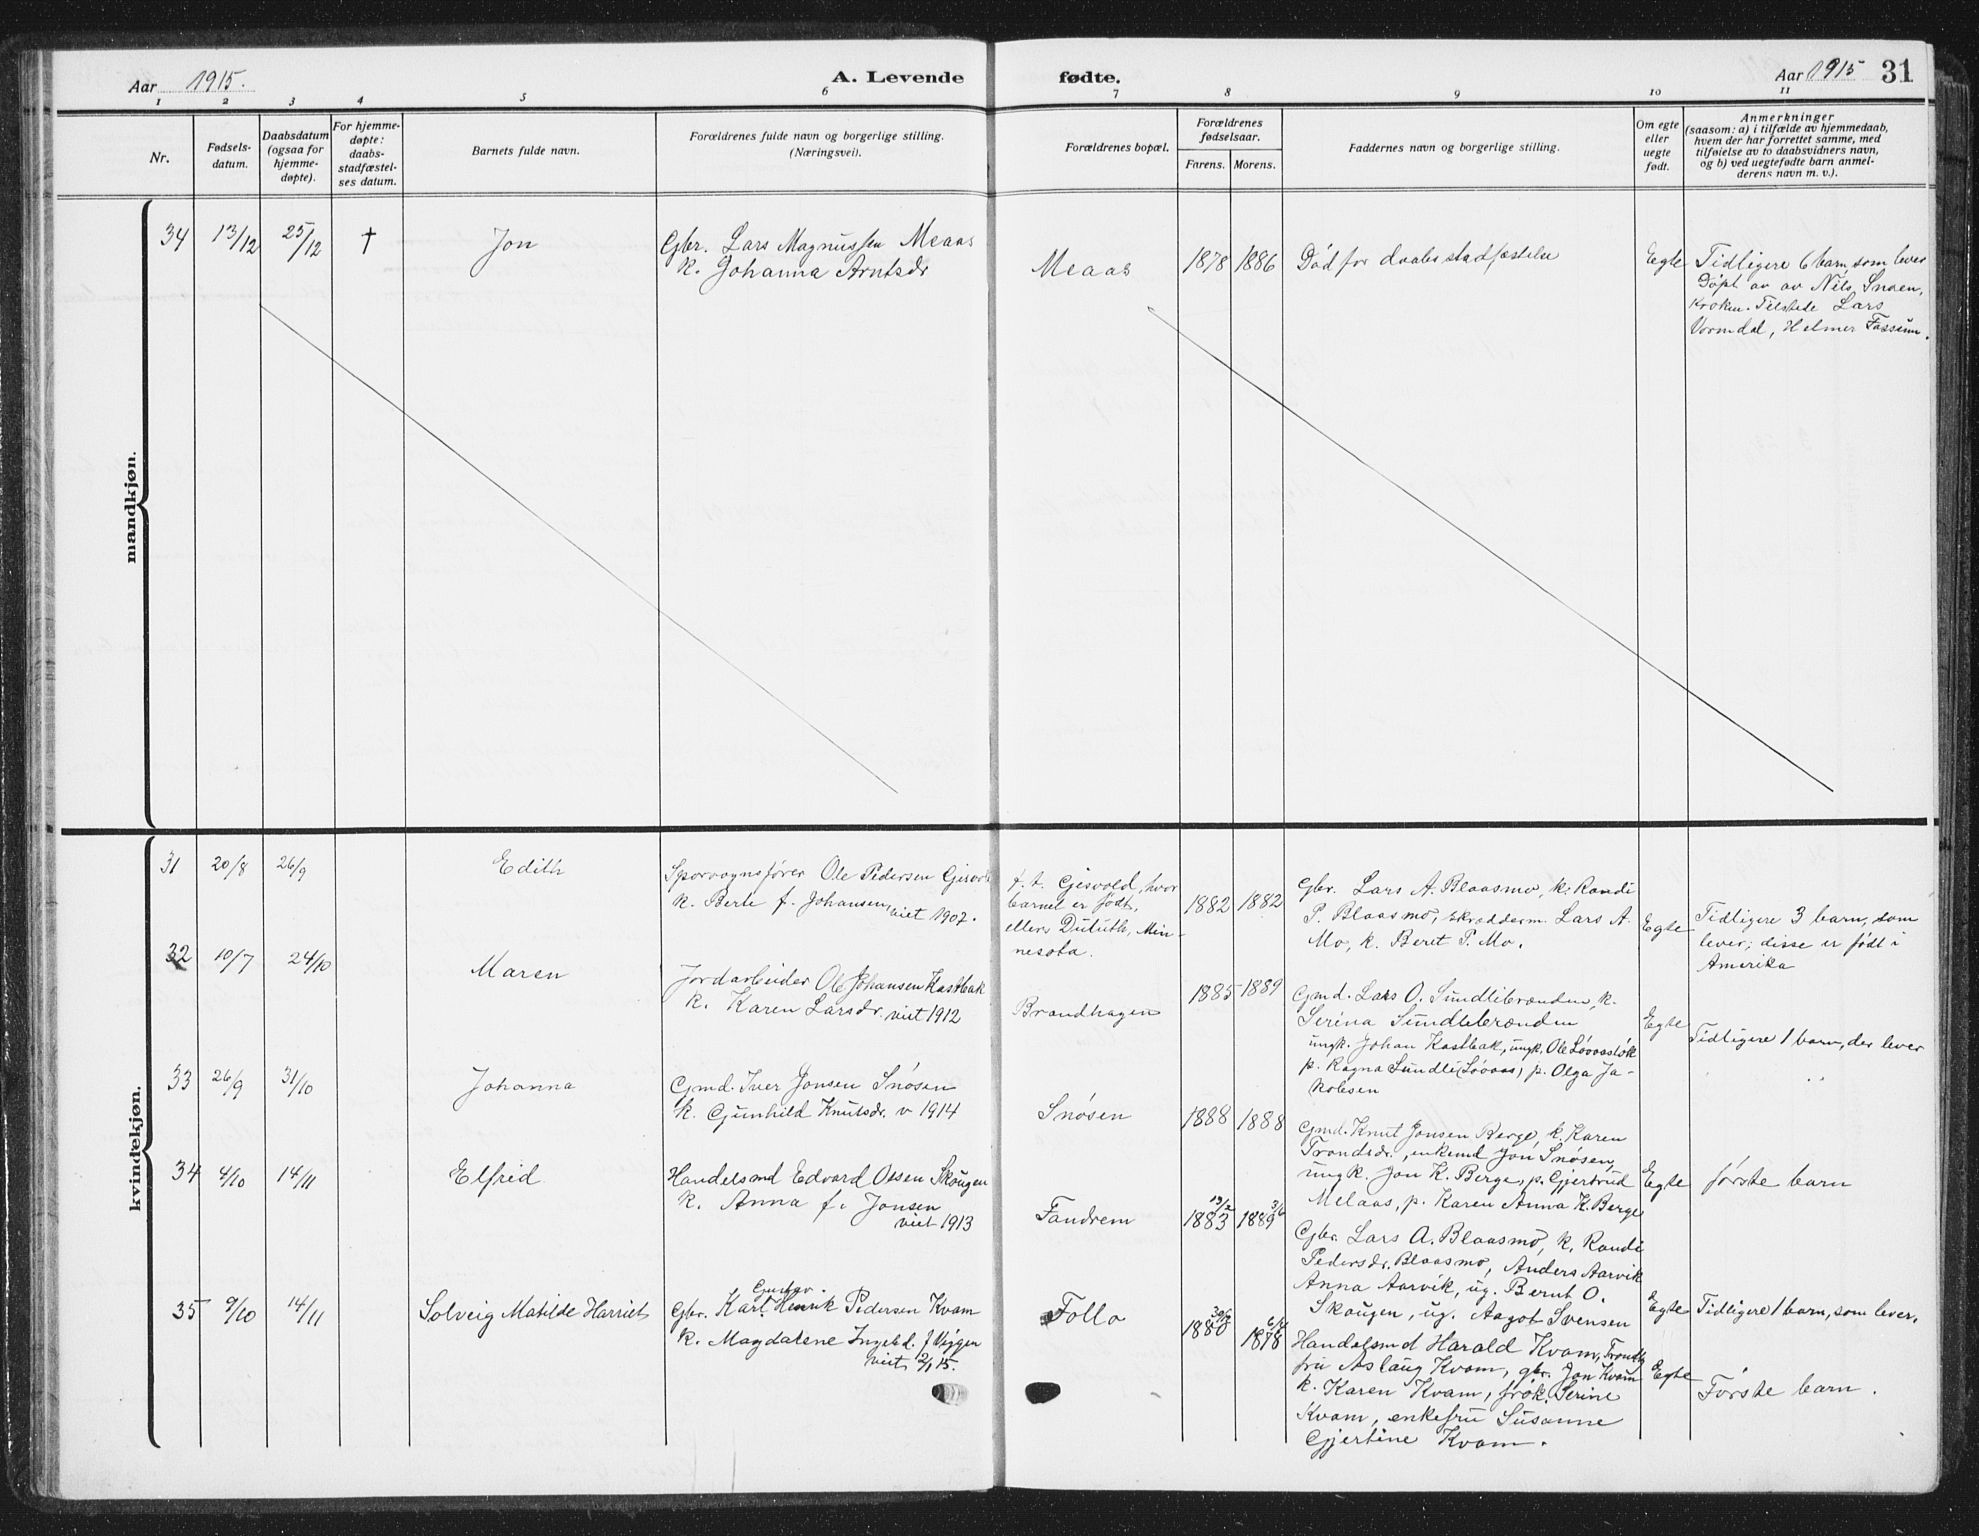 Aar 1915. A. Levende fødte. Aar 1915 31
1 2 3 4 5 6 7 8 9 10 11
Nr.
Fødsels-
datum.
Daabsdatum
(ogsaa for
hjemme-
døpte).
For hjemme-
døpte:
daabs-
stadfæstel-
ses datum.
Barnets fulde navn.
Forældrenes fulde navn og borgerlige stilling.
(Næringsvei).
Forældrenes bopæl.
Forældrenes
fødselsaar.
Farens. Morens.
Faddernes navn og borgerlige stilling.
Om egte
eller
uegte
født.
Anmerkninger
(saasom: a) i tilfælde av hjemmedaab,
hvem der har forrettet samme, med
tilføielse av to daabsvidners navn,
og b) ved uegtefødte barn anmel-
derens navn m. v.).
mandkjøn.
34 13/12 25/12 † Jon
Gbr. Lars Magnussen Meaas
k. Johanna Arntsdr
Meaas
1878 1886
Død før daabsstadfæstelse
Egte
Tidligere 6 barn, som lever
Døpt av av Nils Snoen,
Kroken. Tilstede Lars
Vormdal, Helmer Fossum.
kvindekjøn.
31 20/8 26/9 Edith
Sporvognsfører Ole Pedersen Gjisvold
k. Berte f. Johansen, viet 1907.
f. t. Gjisvold, hvor
barnet er født,
ellers Duluth, Min-
nesota.
1882 1882
Gbr. Lars A. Blaasmo, k. Randi
P. Blaasmo, skrædderm. Lars A.
Mo, k. Beret P. Mo.
Egte
Tidligere 3 barn, som
lever; disse er født i
Amerika
32 10/7 24/10 Maren
Jordarbeider Ole Johansen Kastbak
k. Karen Larsdr. viet 1912
Brandhagen
1885 1889
Gmd. Lars O. Sundlibrænden, k.
Serina Sundlibrænden
ungk. Johan Kastbak, ungk. Ole Løvaasløk
p. Ragna Sundli (Løvaas), p. Olga Ja-
kobsen
Egte
Tidligere 1 barn, der lever
33 26/9 31/10 Johanna
Gmd. Iver Jonsen Snøsen
k. Gunhild Knutsdr. v 1914
Snøsen
1888 1888
Gmd. Knut Jonsen Berge, k. Karen
Trondsdr., enkemd Jon Snøsen,
ungk. Jon K. Berge, p. Gjertrud
Melaas, p. Karen Anna K. Berge
Egte
første barn
34 4/10 14/11 Elfrid
Handelsmd Edvard Olsen Skougen
k. Anna f. Jonsen
viet 1913
Fandrem
13/2 1883 3/6 1889
Gbr. Lars A. Blaasmo, k. Randi
Pedersdr. Blaasmo, Anders Aarvik
Anna Aarvik, ug. Bernt O.
Skougen, ug. Aagot Svensen
Egte
Tidligere 1 barn, som lever.
35 9/10 14/11 Solveig Matilde Harriet
Gustav.
Gbr. Karl Henrik Pedersen Kvam
k. Magdalene Ingebd. f Viggen
viet 2/1 15.
Follo
30/6 1880 6/6 1878
Handelsmd Harald Kvam, Trondhj
fru Aslaug Kvam, gbr. Jon Kvam
k. Karen Kvam, frøk. Serine
Kvam, enkefru Susanne
Gjertine Kvam.
Egte
Første barn.